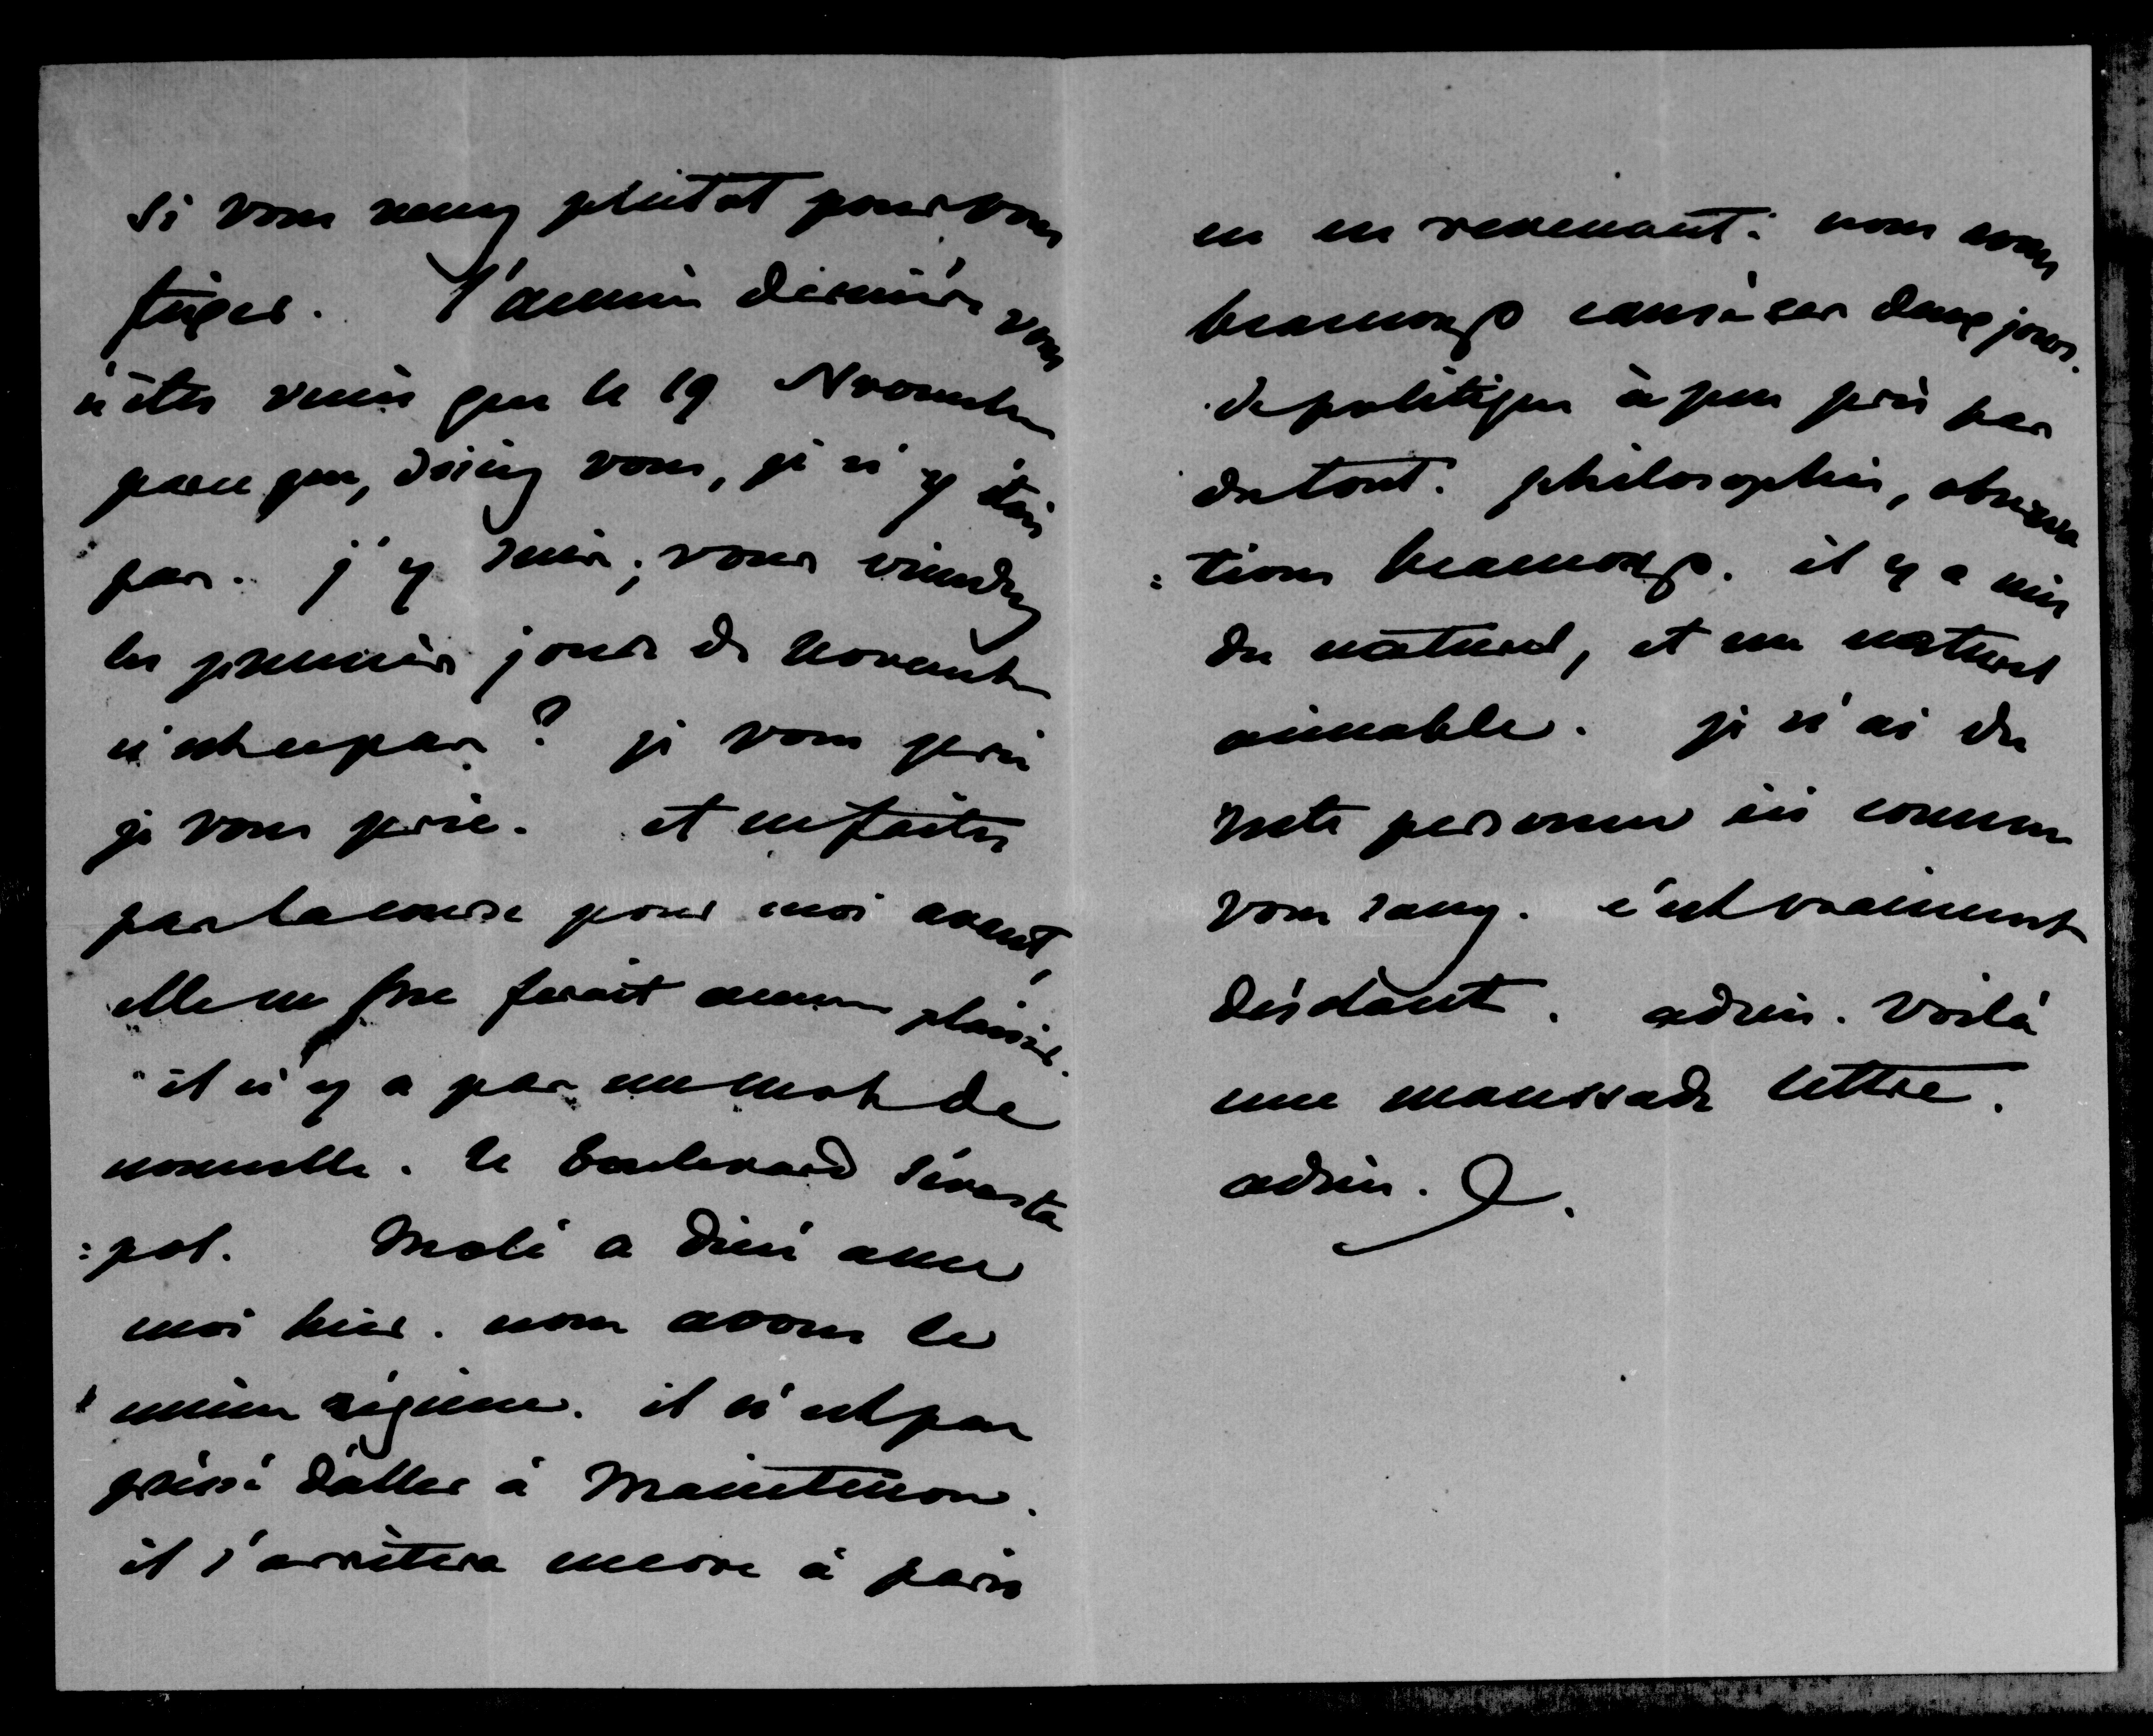 si vous venez plutot pour vous
figer. l'année dernière vous
n'êtes venu que le 19 Novembre
parce que, disiez vous, je n'y étais
pas. j'y suis; vous viendrez
les premiers jours de novembre
n'est ce pas? je vous prie
je vous prie. et ne faites
pas la course pour moi avant,
elle ne me ferait aucun plaisir.
il n'y a pas un mot de
nouvelle. le boulevard Sévasto
:pol. Molé a diné avec
moi hier. nous avons le
même régime. il n'est pas
pressé d'aller à Maintenon.
il s'arrêtera encore à paris
en en revenant: nous avons
beaucoup causé ces deux jours.
de politique à peu près pas
du tout. philosophie, observa
:tions beaucoup. il y a mis
du naturel, et un naturel
aimable. je n'ai du
reste personne ici comme
vous savez. c'est vraiment
désolant. adieu. voilà
une maussade lettre.
adieu. D.